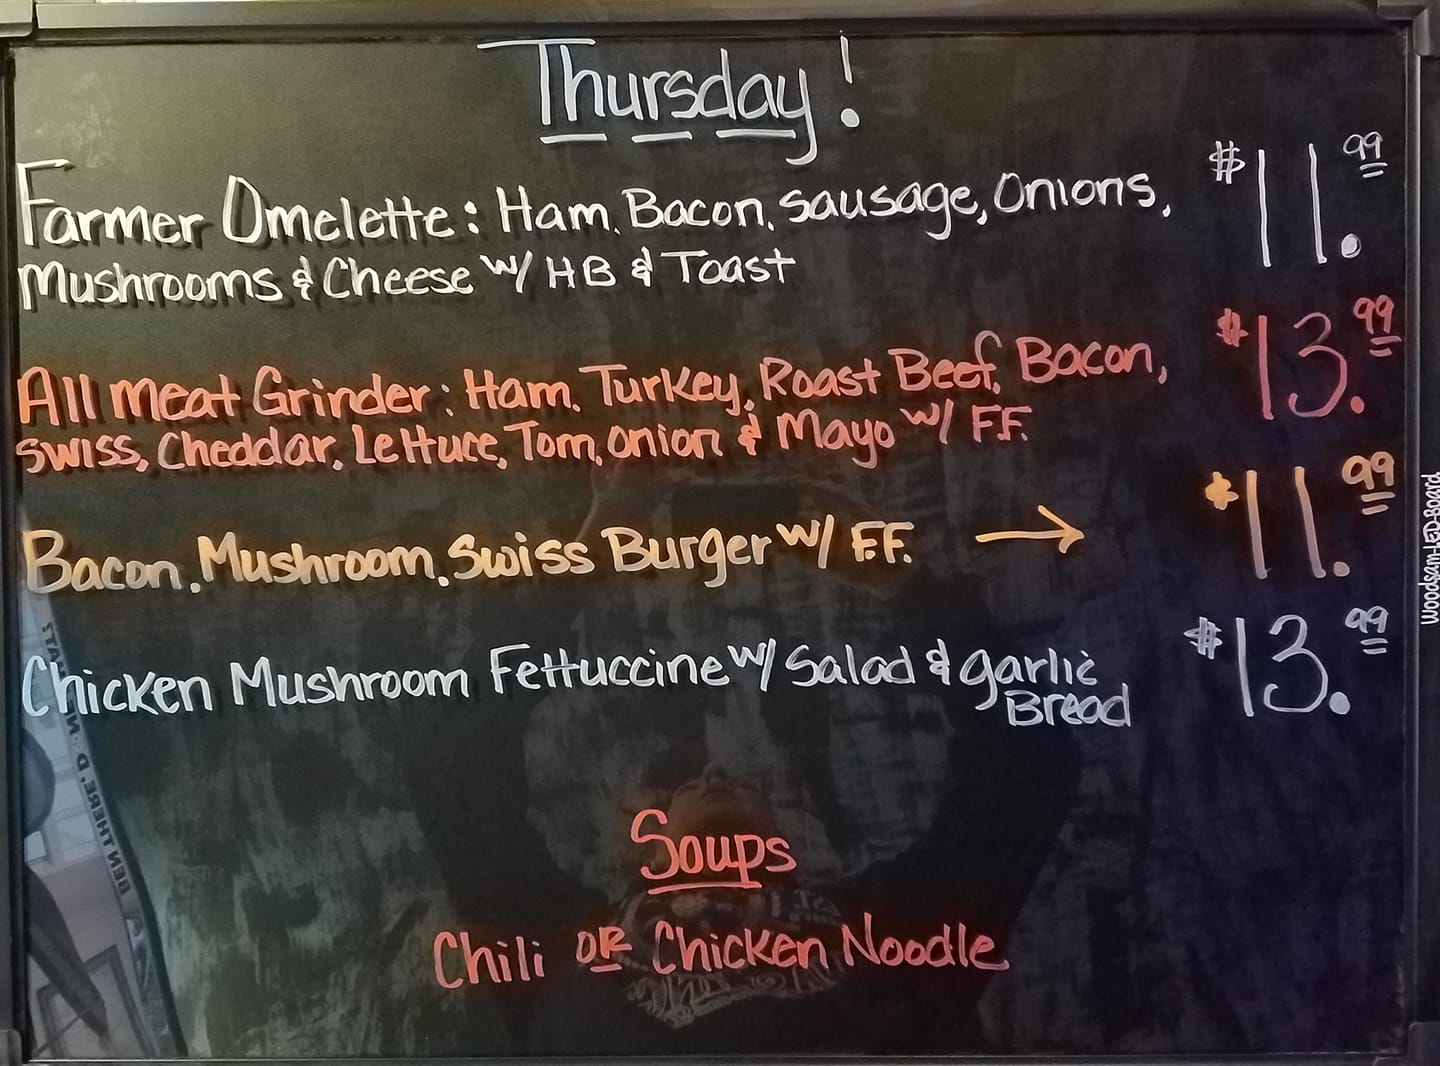 Thursday!
Farmer Omelette: Ham, Bacon, Sausage, Onions, $11.99
Mushrooms & Cheese w/ HB & Toast
All Meat Grinder: Ham, Turkey, Roast Beef, Bacon, $13.99
Swiss, Cheddar, Lettuce, Tom, Onion & Mayo w/ F.F.
Bacon, Mushroom, Swiss Burger w/ F.F. → $11.99
Chicken Mushroom Fettuccine w/ Salad & garlic $13.99
Bread
Soups
Chili OR Chicken Noodle
Woodsam LED Board
BEN THERE, D